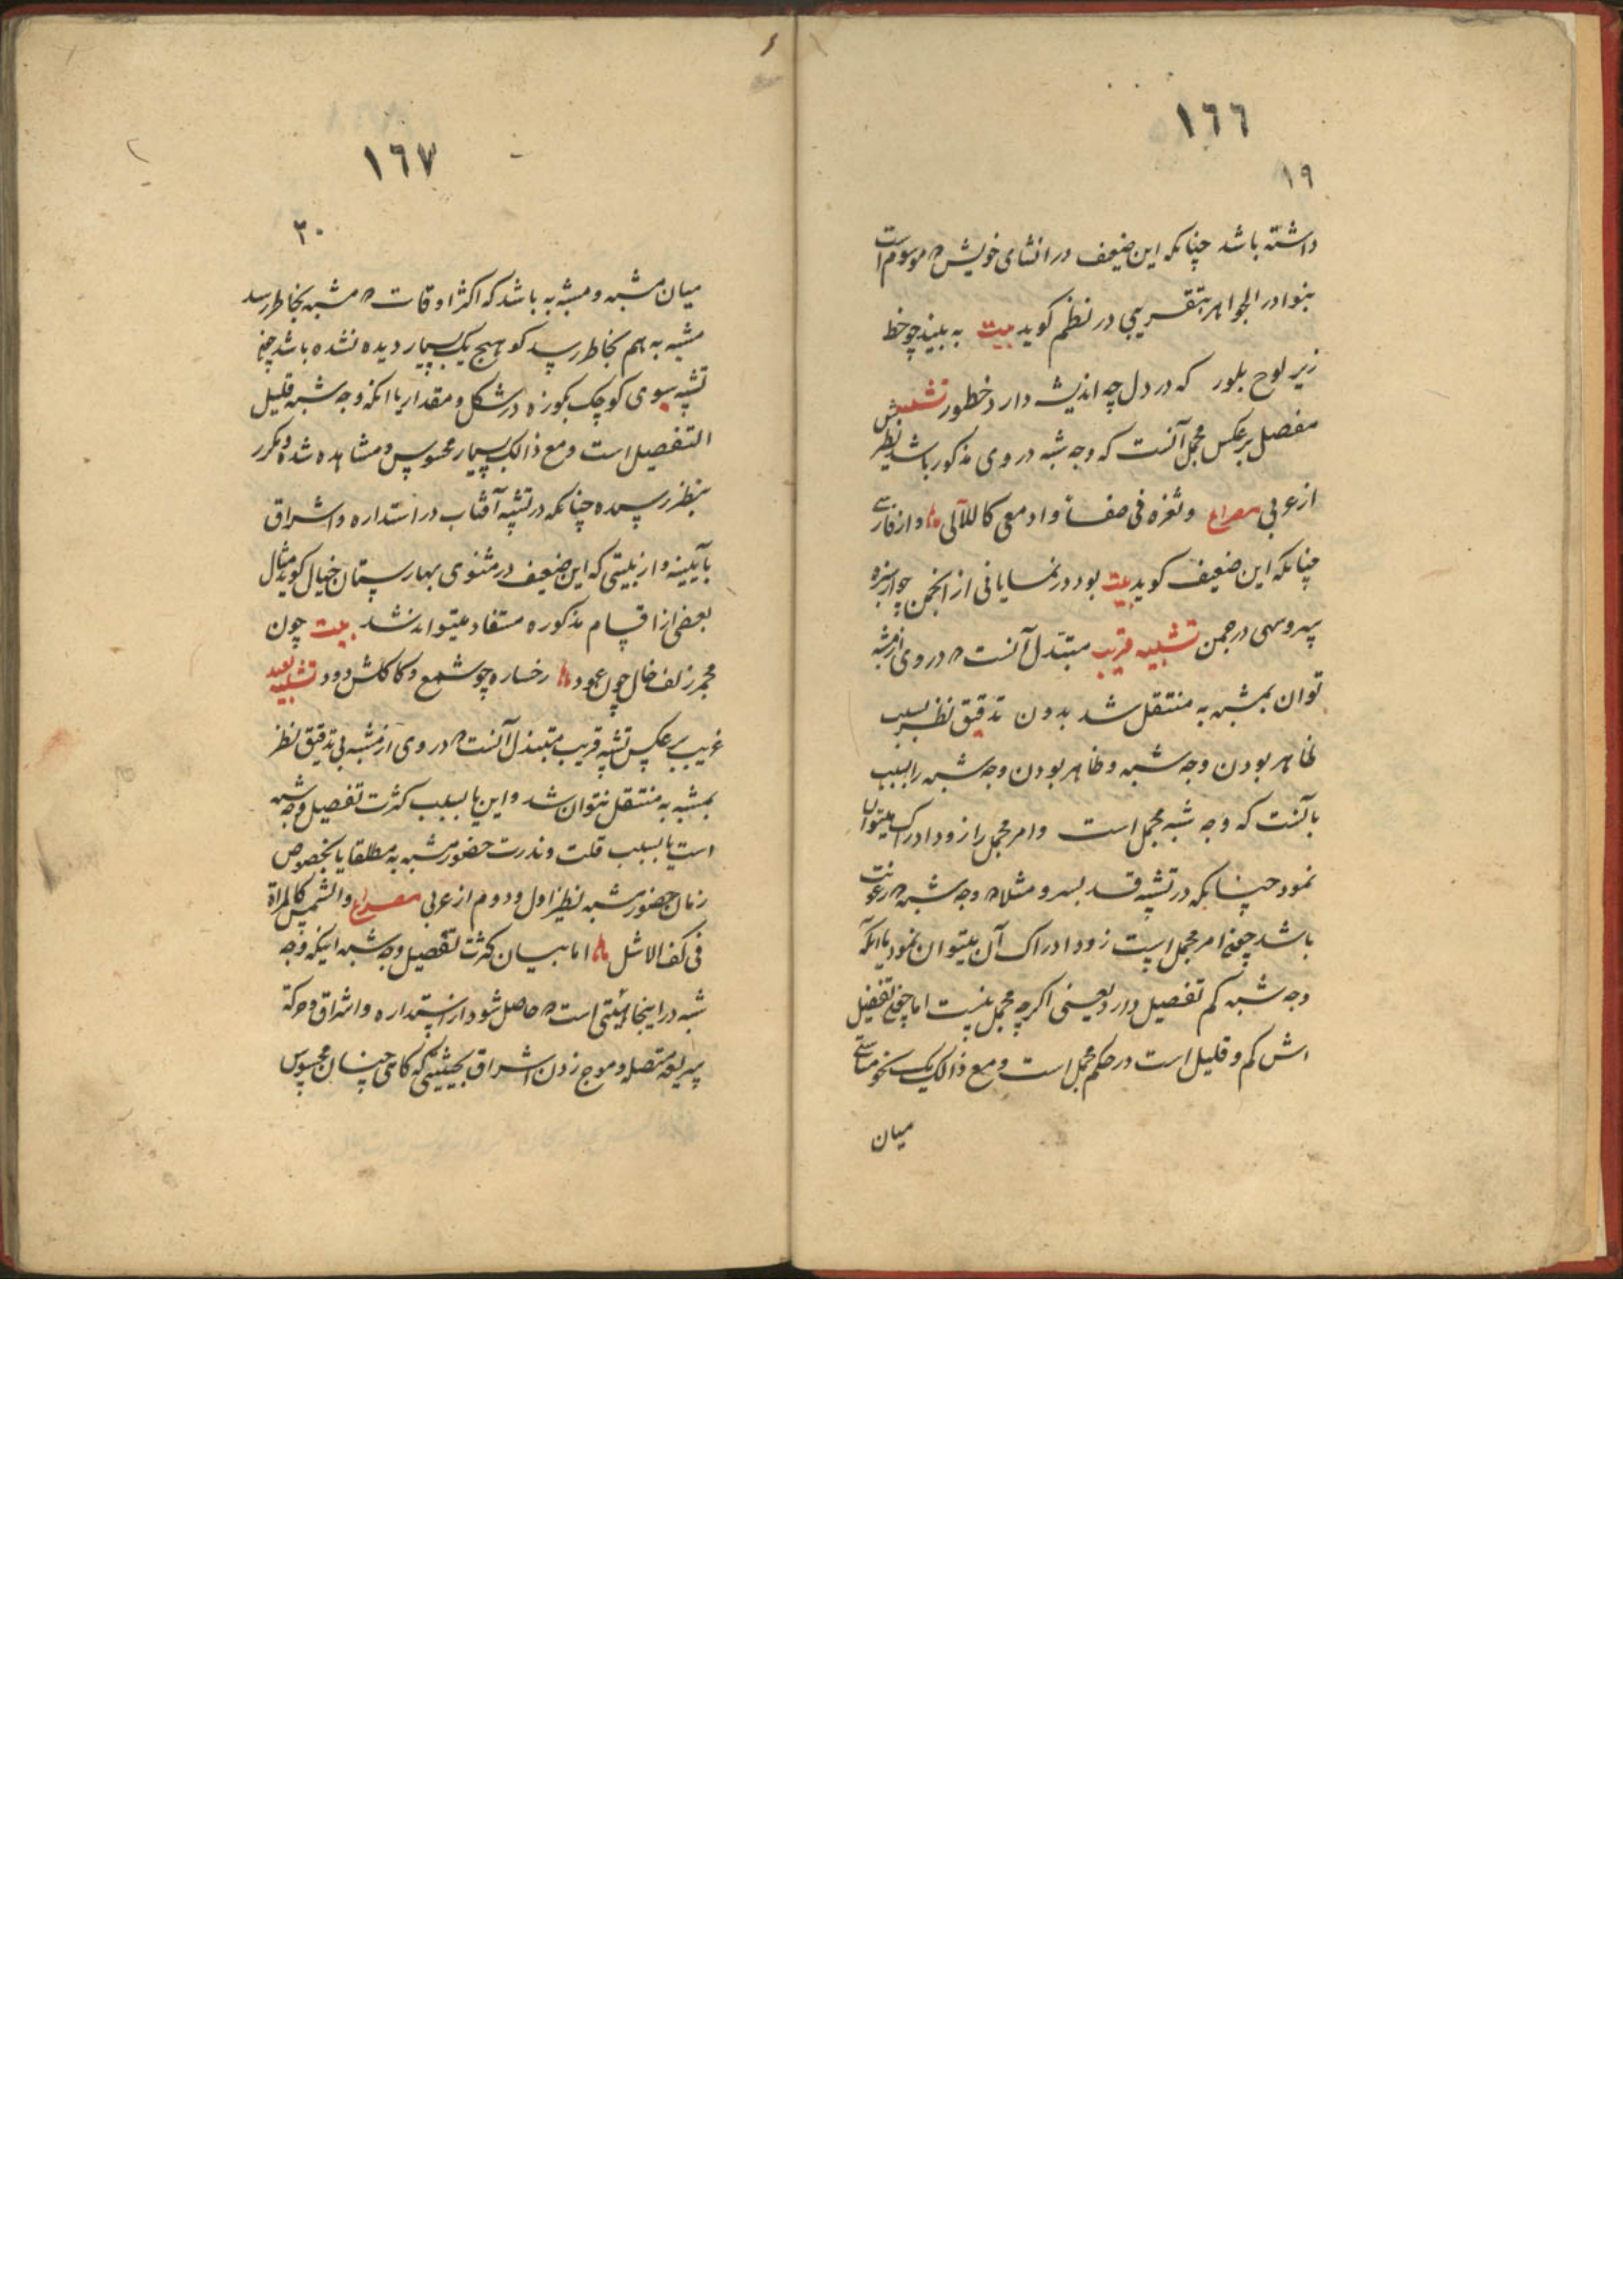 ١٦٦
١٩
داشته باشد چنانکه این ضعیف در انشای خویش که موسوم است
بنوادر الجواهر بتقریبی در نظم کوید بیت به بیند چو خط
زیر لوح بلور که در دل چه اندیشه دارد خطور تشبیه
مفصل برعکس مجمل آنست که وجه شبه در وی مذکور باشد نظیر
از عربی مصراع وثغره فی صفاء وادمعی کاللآلی و از فارسی
چنانکه این ضعیف کوید بیت بود در نمایانی از انجمن چو از سبزه
سروسهی در چمن تشبیه قریب مبتذل آنست که در وی از مشبه
توان بمشبه به منتقل شد بدون تدقیق نظر بسبب
ظاهر بودن وجه شبه و ظاهر بودن وجه شبه را بسبب
یا آنست که وجه شبه مجمل است و امر مجمل را زود ادراک میتوان
نمود چنانکه در تشبیه قد بسرو مثلا که وجه شبه که رعونت
باشد چون امر مجمل است زود ادراک آن میتوان نمود یا آنکه
وجه شبه کم تفصیل دارد یعنی اکرچه مجمل نیست اما چون تفصیل
اش کم و قلیل است در حکم مجمل است و مع ذالک یک نحو مناسبتی
میان
١٦٧
٢٠
میان مشبه و مشبه به باشد که اکثر اوقات که مشبه بخاطر رسد
مشبه به هم بخاطر رسد کو هیچ یک بسیار دیده نشده باشد چون
تشبیه سبوی کوچک بکوزه در شکل و مقدار یا آنکه وجه شبه قلیل
التفصیل است و مع ذالک بسیار محسوس و مشاهده شده و مکرر
بنظر رسیده چنانکه در تشبیه آفتاب در استداره و اشراق
بآیینه و از بیتی که این ضعیف در مثنوی بهارستان خیال کوید مثال
بعضی از اقسام مذکوره مستفاد میتواند شد بیت چون
مجمر زلف خال چون عود رخساره چو شمع و کاکلش دود تشبیه بعید
غریب برعکس تشبیه قریب مبتذل آنست که در وی از مشبه بی تدقیق نظر
بمشبه به منتقل نتوان شد و این یا بسبب کثرت تفصیل وجه شبه
است یا بسبب قلت و ندرت حضور مشبه به مطلقا یا بخصوص
زمان حضور مشبه نظیر اول و دوم از عربی مصراع والشمس کالمرآة
فی کف الاشل اما بیان کثرت تفصیل وجه شبه اینکه وجه
شبه در اینجا هیئتی است که حاصل شود از استداره و اشراق و حرکة
سریعه متصله و موج زدن اشراق بحیثیتی که کاهی چنان محسوس